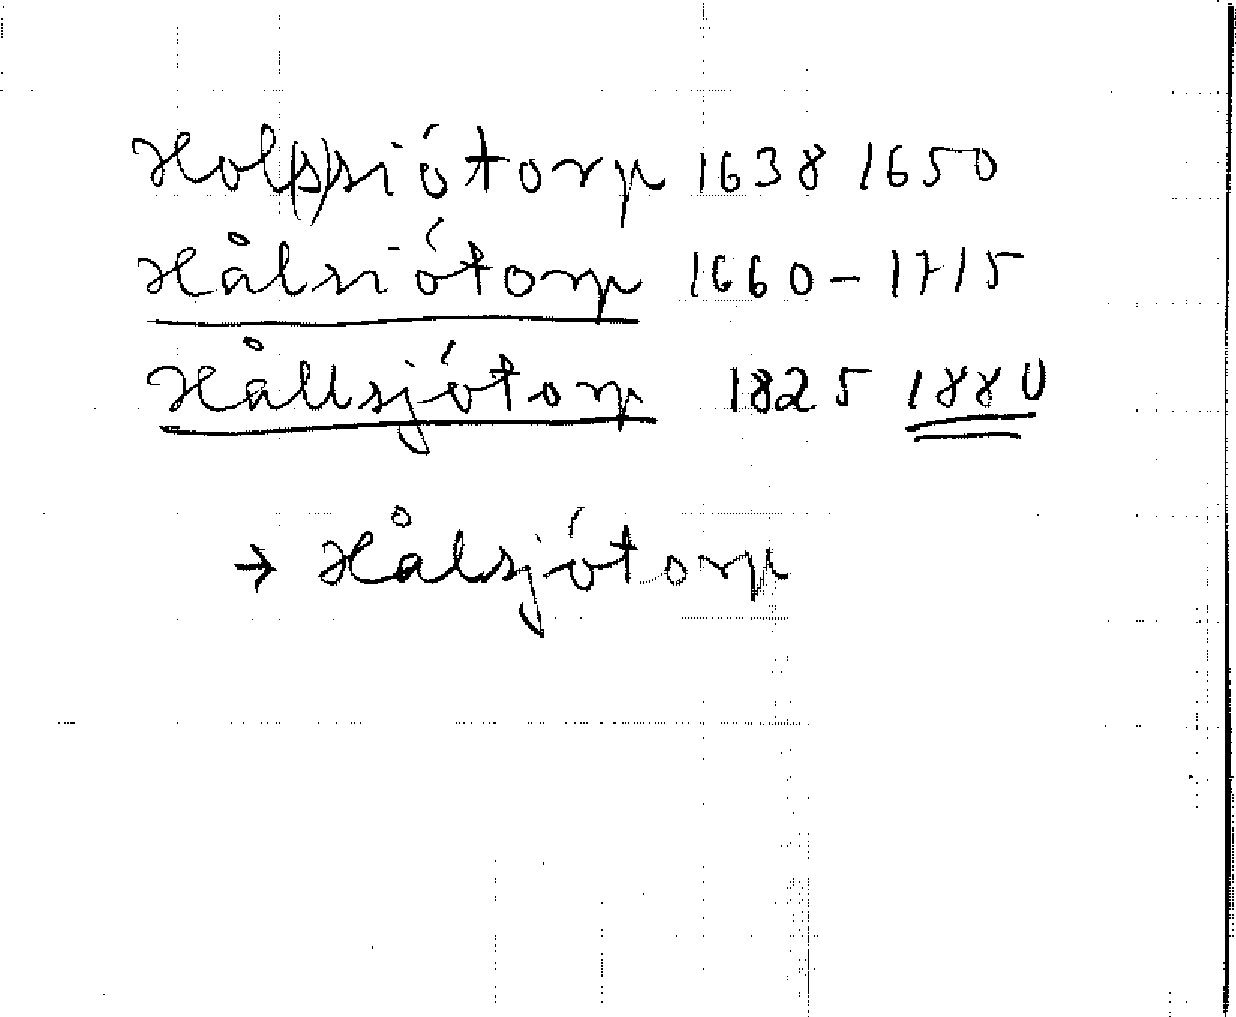 Hol(s)siótorp 1638 1650
Hålsiótorp 1660-1715
Hållsjótorp 1825 1880
→ Hålsjótorp